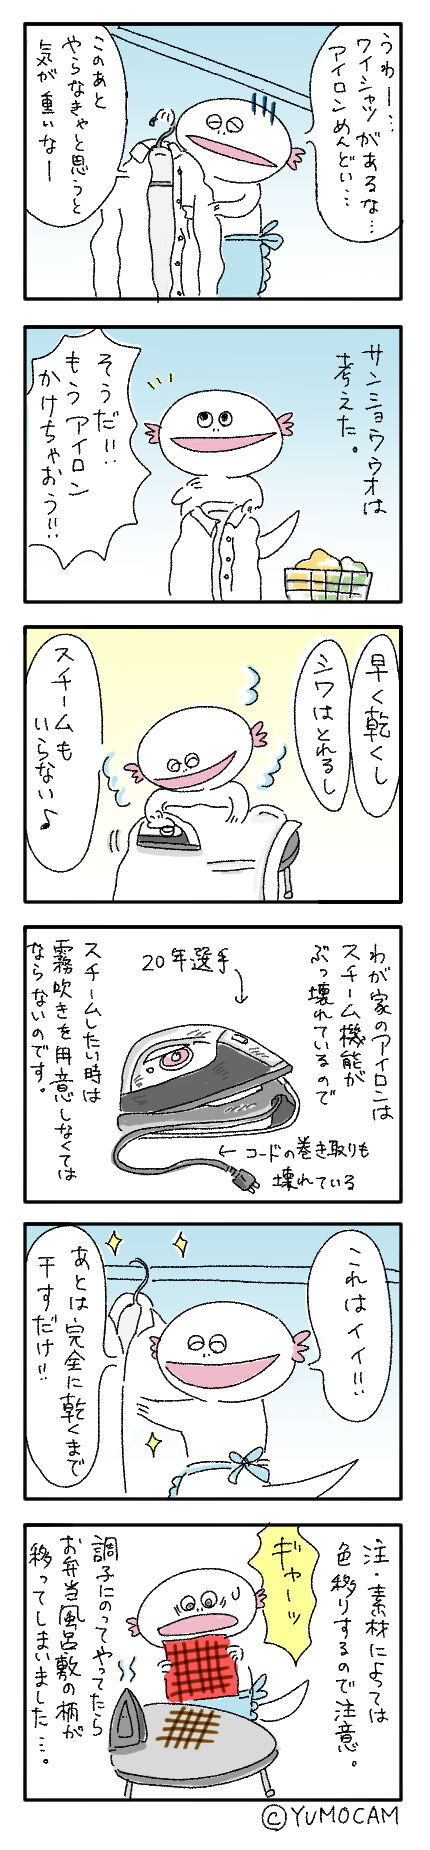 うわー…
ワイシャツがあるな…
アイロンめんどい…
このあと
やらなきゃと思うと
気が重いなー
サンショウウオは
考えた。
そうだ!!
もうアイロン
かけちゃおう!!
早く乾くし
シワはとれるし
スチームも
いらない♪
わが家のアイロンは
スチーム機能が
ぶっ壊れているので
20年選手
←コードの巻き取りも
壊れている
スチームしたい時は
霧吹きを用意しなくては
ならないのです。
これはイイ!!
あとは完全に乾くまで
干すだけ!!
注・素材によっては
色移りするので注意。
ギャーッ
調子にのってやってたら
お弁当風呂敷の柄が
移ってしまいました…。
©YUMOCAM